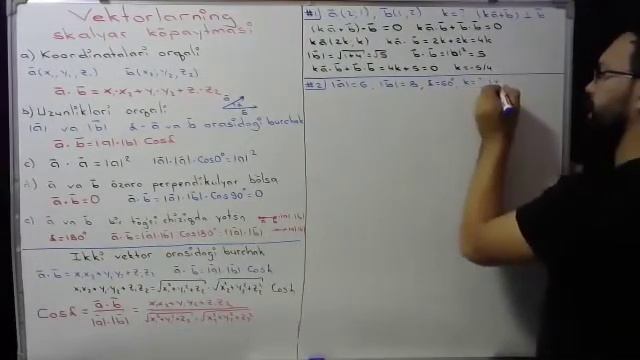 Vektorlarning
skalyar ko'paytmasi
a) Koordinatalari orqali
ā(x₁y₁z₁) b̄(x₂y₂z₂)
ā·b̄ = x₁·x₂+y₁·y₂+z₁·z₂
b) Uzunliklari orqali
|ā| va |b̄| α-ā va b̄ orasidagi burchak
ā·b̄ = |ā|·|b̄| Cosα
c) ā·ā = |ā|² |ā|·|ā|·Cos0°=|ā|²
ā va b̄ o'zaro perpendikulyar bo'lsa
ā·b̄=0 ā·b̄=|ā|·|b̄|·Cos90°=0
e) ā va b̄ bir to'g'ri chiziqda yotsa
α=180° ā·b̄=|ā|·|b̄|Cos180°=-|ā|·|b̄|
Ikki vektor orasidagi burchak
ā·b̄=x₁x₂+y₁y₂+z₁z₂ ā·b̄=|ā|·|b̄|Cosα
x₁x₂+y₁y₂+z₁z₂=√x₁²+y₁²+z₁²·√x₂²+y₂²+z₂² Cosα
Cosα = ā·b̄ / |ā|·|b̄| = x₁x₂+y₁y₂+z₁z₂ / √x₁²+y₁²+z₁²·√x₂²+y₂²+z₂²
#1) ā(2,1), b̄(1,2) k=? (kā+b̄)⊥b̄
(kā+b̄)·b̄=0 kā·b̄+b̄·b̄=0
kā(2k,k) kā·b̄=2k+2k=4k
|b̄|=√1+4=√5 b̄·b̄=|b̄|²=5
kā·b̄+b̄·b̄=4k+5=0 k=-5/4
#2) |ā|=6, |b̄|=3, α=60°, k=?